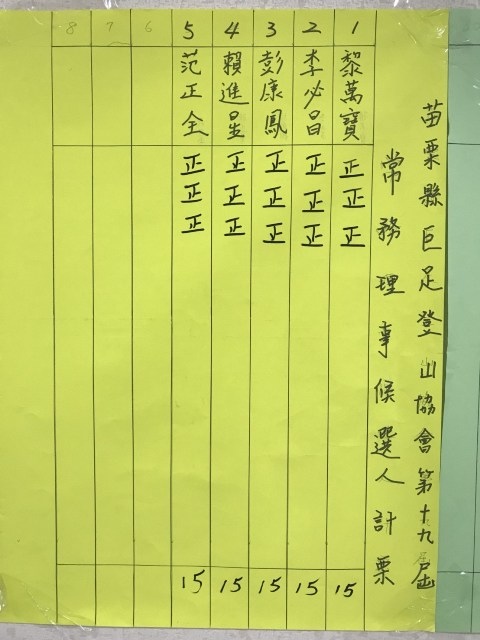 苗栗縣巨足登山協會第十九屆
常務理事候選人計票
1 黎萬寶 正正正 15
2 李必昌 正正正 15
3 彭康鳳 正正正 15
4 賴進星 正正正 15
5 范正全 正正正 15
6
7
8